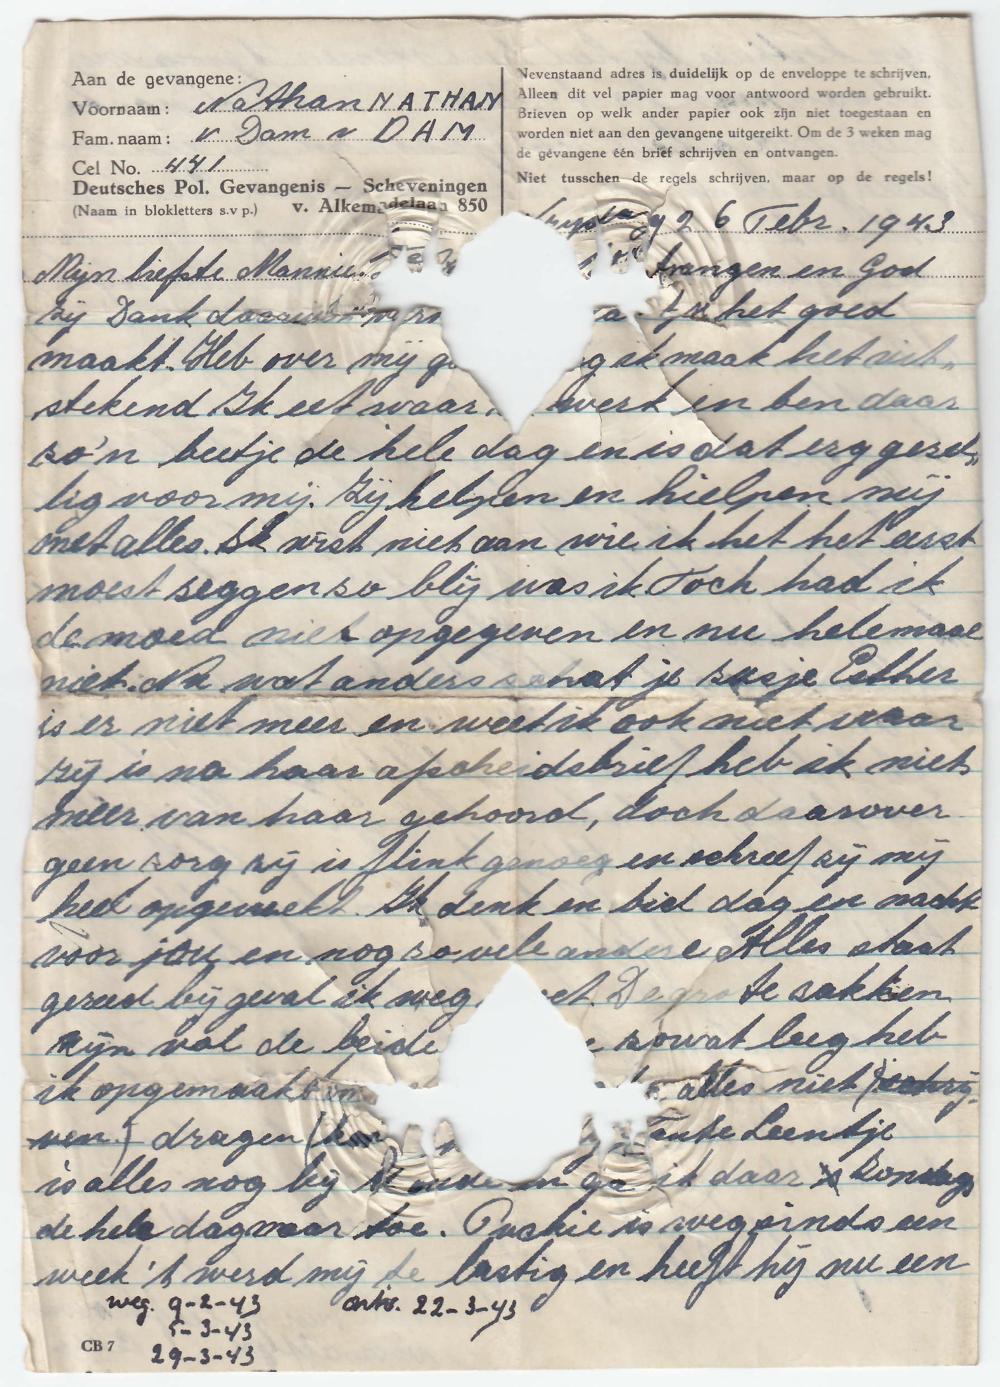 Aan de gevangene:
Voornaam: Nathan NATHAN
Fam. naam: v Dam v DAM
Cel No. 441
Deutsches Pol. Gevangenis — Scheveningen
(Naam in blokletters s.v.p.) v. Alkemadelaan 850
Nevenstaand adres is duidelijk op de enveloppe te schrijven.
Alleen dit vel papier mag voor antwoord worden gebruikt.
Brieven op welk ander papier ook zijn niet toegestaan en
worden niet aan den gevangene uitgereikt. Om de 3 weken mag
de gevangene één brief schrijven en ontvangen.
Niet tusschen de regels schrijven, maar op de regels!
26 Febr. 1943
Mijn liefste Mannie. en God
zij Dank het goed
maakt. Heb over mij g ik maak het uit„
stekend Ik eet waar werk en ben daar
zo'n beetje de hele dag en is dat erg gezel„
lig voor mij. Zij helpen en hielpen mij
met alles. Ik wist niet aan wie ik het het eerst
moest zeggen zo blij was ik Toch had ik
de moed niet opgegeven en nu helemaal
niet. Nu wat anders schat je zusje Esther
is er niet meer en weet ik ook niet waar
zij is na haar afscheidsbrief heb ik niet
meer van haar gehoord, doch daarover
geen zorg zij is flink genoeg en schreef zij mij
heel opgewekt. Ik denk en bid dag en nacht
voor jou en nog zovele andere Alles staat
gereed bij geval ik weg moet. De grote zakken
zijn vol de beide zowat leeg heb
ik opgemaakt alles niet (schrij-
ven) dragen Tante Leentje
is alles nog bij en ga ik daar zondags
de hele dag naar toe. is weg sinds een
week 't werd mij te lastig en heeft hij nu een
weg. 9-2-43 ontv. 22-3-43
5-3-43
CB 7
29-3-43